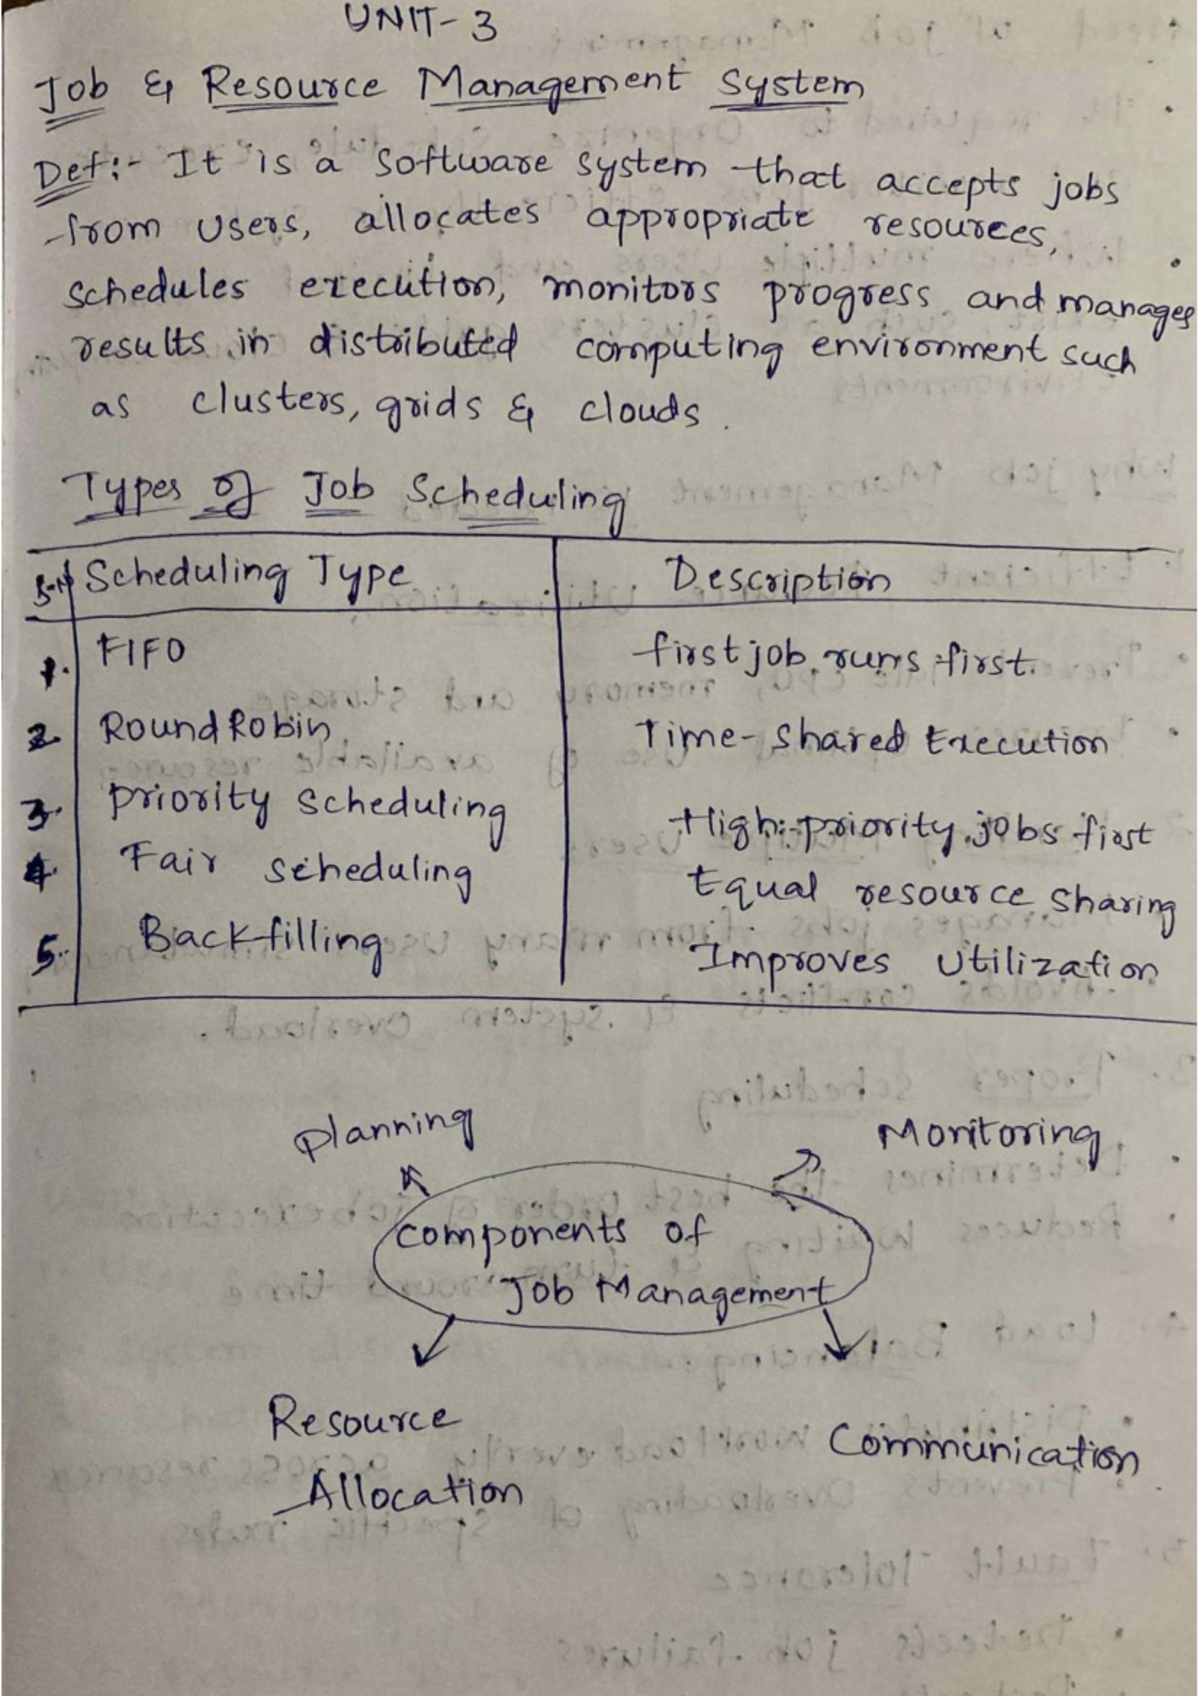 UNIT- 3
Job & Resource Management System
Def:- It is a software system that accepts jobs
from users, allocates appropriate resources,
schedules execution, monitors progress and manages
results in distributed computing environment such
as clusters, grids & clouds.
Types of Job Scheduling
S.N Scheduling Type Description
1. FIFO first job runs first.
2. Round Robin Time-shared Execution
3. Priority scheduling High-priority jobs first
4. Fair scheduling Equal resource sharing
5. Backfilling Improves Utilization
Planning Monitoring
components of
Job Management
Resource
Allocation
Communication